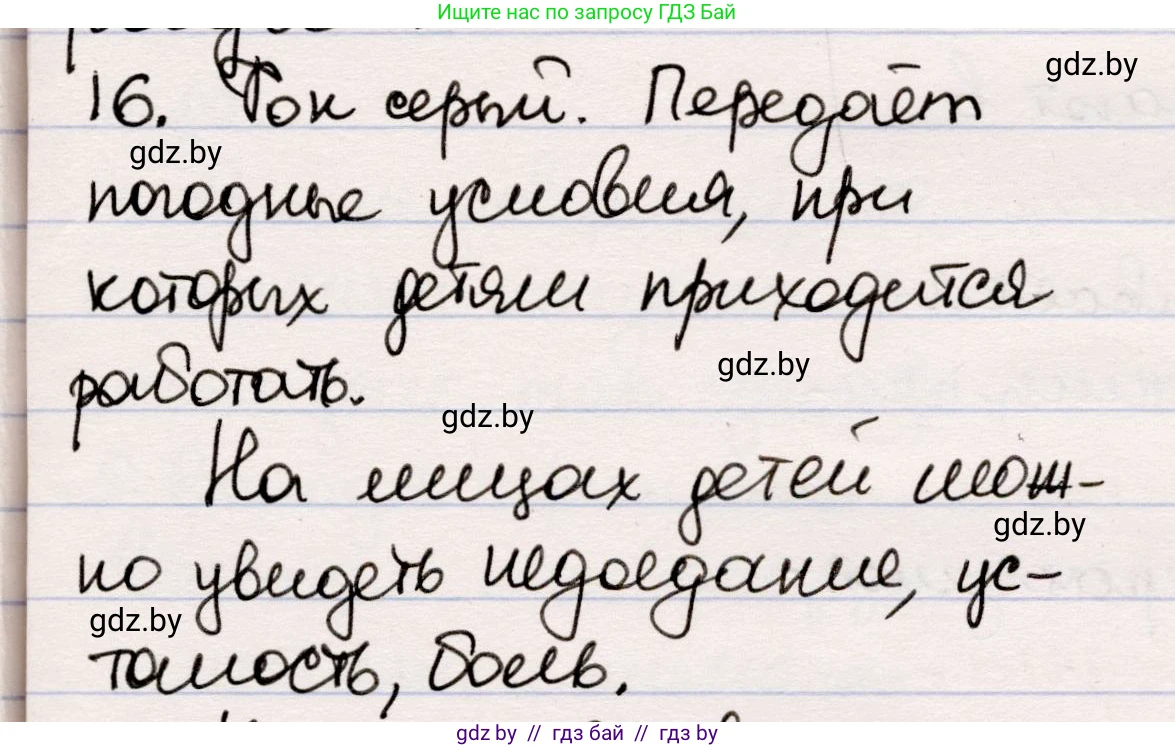 Ищите нас по запросу ГДЗ Бай
gdz.by
16. Тон серый. Передаёт
gdz.by
погодные условия, при
которых детям приходится
gdz.by
работать.
gdz.by
На лицах детей мож-
gdz.by
но увидеть недоедание, ус-
gdz.by
талость, боль.
gdz.by // гдз бай // гдз by